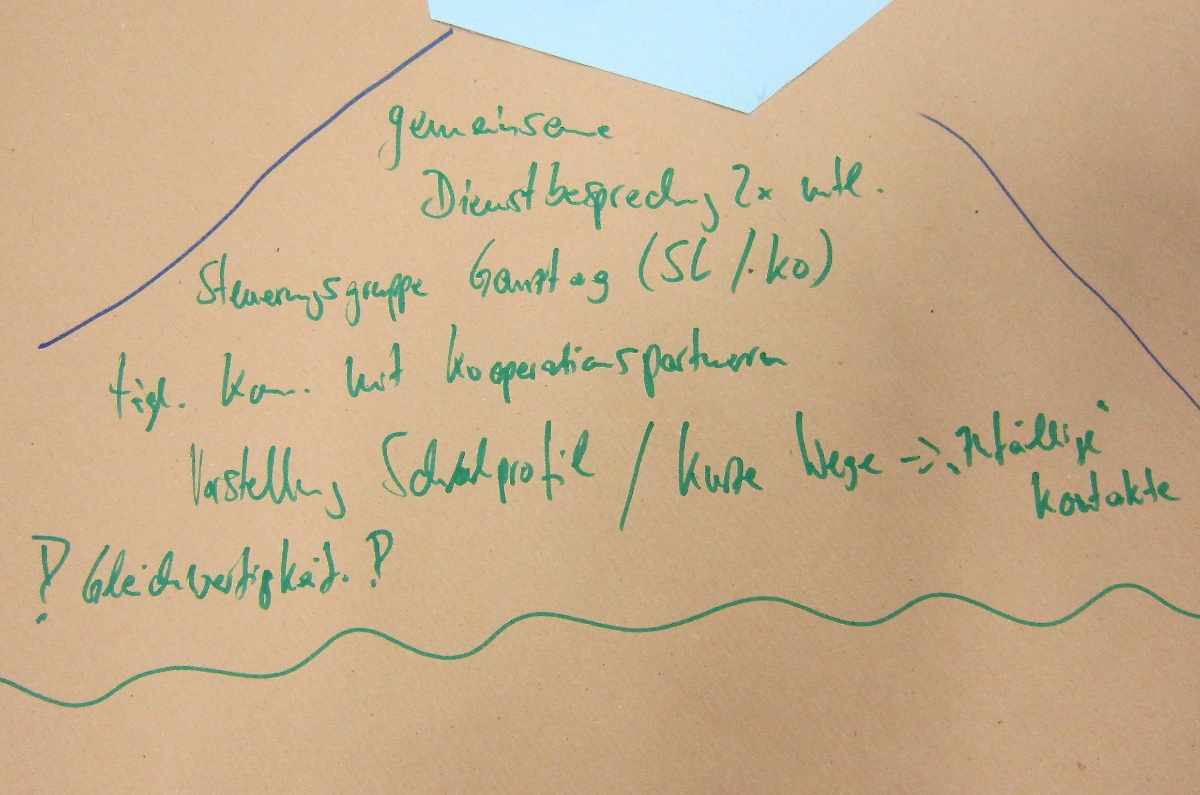 gemeinsame
Dienstbesprechung 2x mtl.
Steuerungsgruppe Ganztag (SL / KO)
tägl. Kom. mit Kooperationspartnern
Vorstellung Schulprofil / Kurze Wege -> „zufällige"
Kontakte
! Gleichwertigkeit. !